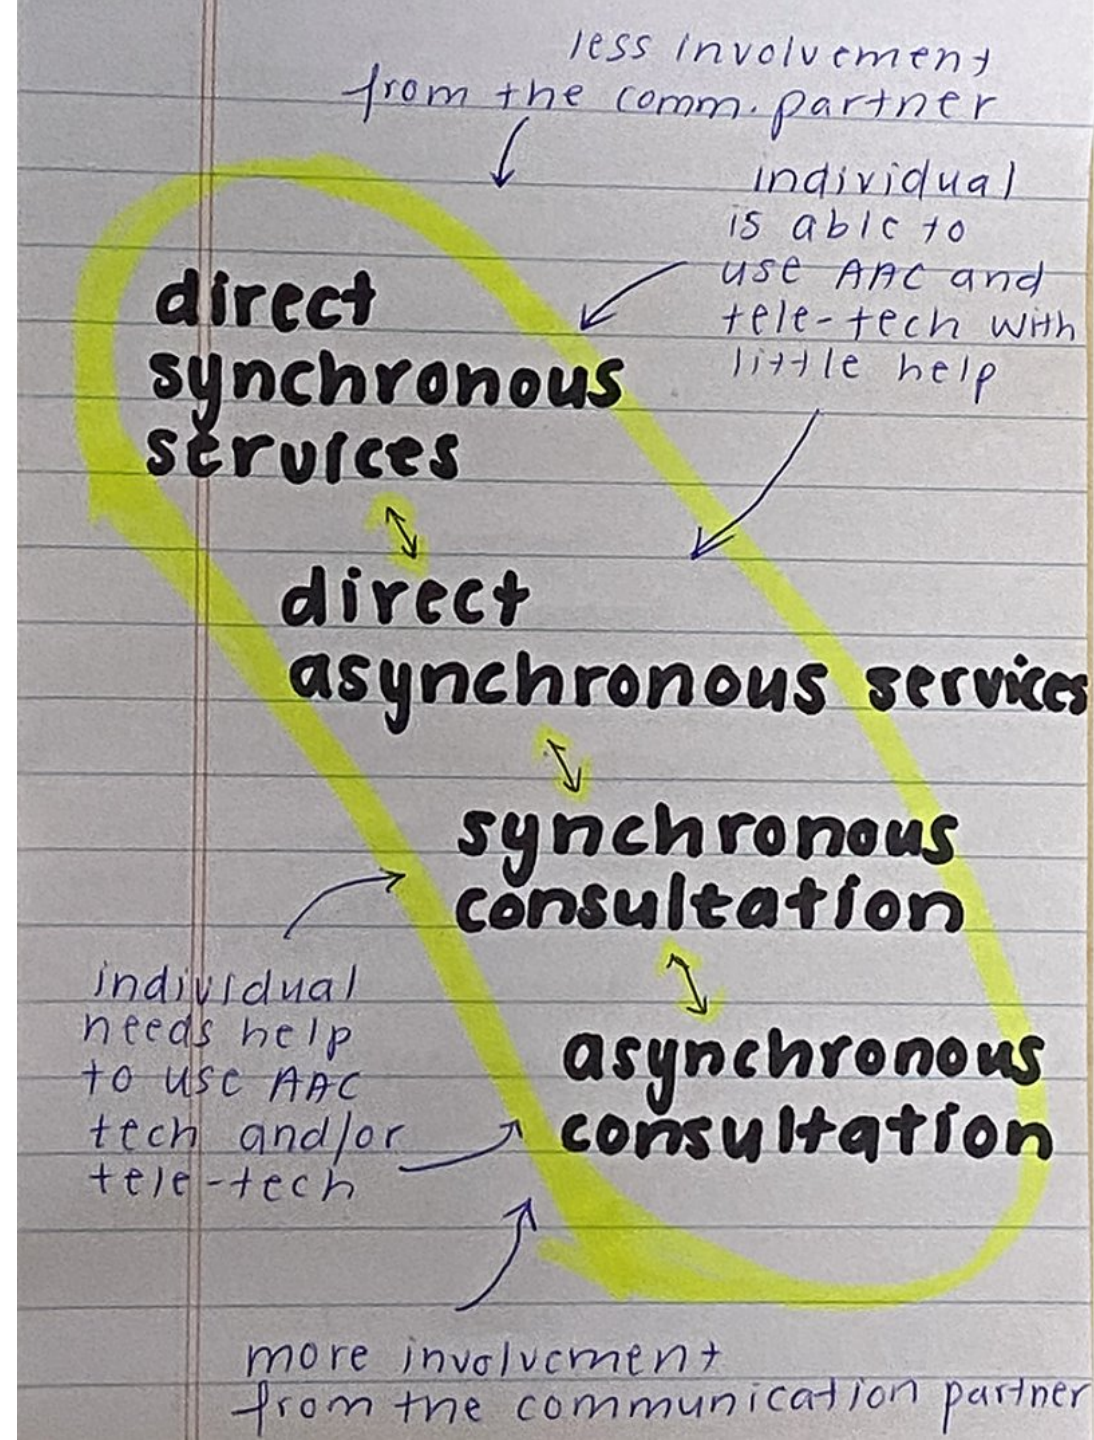 less involvement
from the comm. partner
individual
is able to
use AAC and
tele-tech with
little help
direct
synchronous
services
direct
asynchronous services
synchronous
consultation
individual
needs help
to use AAC
tech and/or
tele-tech
asynchronous
consultation
more involvement
from the communication partner